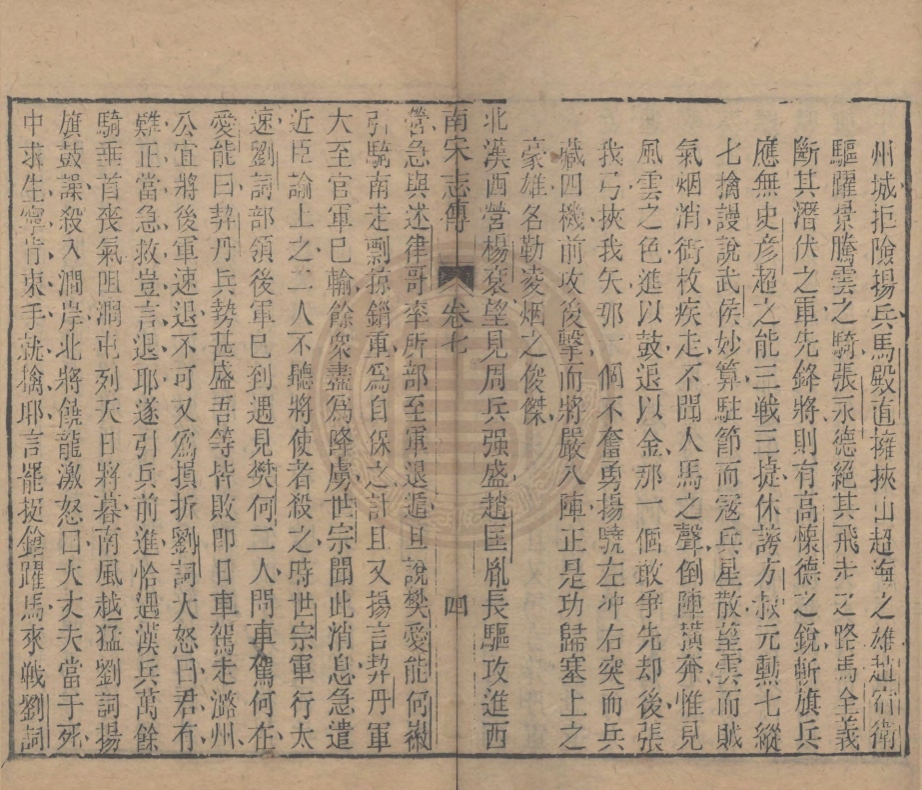 州城拒險揚兵馬殿直擁挾山超海之雄趙宿衛
驅躍景騰雲之騎張永德絕其飛走之路馬全義
斷其潛伏之軍先鋒將則有高懷德之銳斬旗兵
應無史彦超之能三戰三捷休誇方叔元勲七縱
七擒謾說武侯妙算駐節而冦兵星散望雲而賊
氣烟消銜枚疾走不聞人馬之聲倒陣橫奔惟見
風雲之色進以鼓退以金那一個敢爭先却後張
我弓挾我矢那一個不奮勇揚驍左冲右突而兵
藏四機前攻後擊而將嚴入陣正是功歸塞上之
豪雄名勒凌烟之俊傑
北漢西營楊袞望見周兵强盛趙匡胤長驅攻進西
南宋志傳 卷七 四
營急與述律哥率所部至軍退遁且說樊愛能何徽
引騎南走剽掠錙重為自保之計且又揚言契丹軍
大至官軍巳輸餘衆盡為降虜世宗聞此消息急遣
近臣諭上之二人不聽將使者殺之時世宗軍行太
速劉詞部領後軍巳到遇見樊何二人問車駕何在
愛能曰契丹兵勢甚盛吾等皆敗即日車駕走潞州
公宜將後軍速退不可又為損折劉詞大怒曰君有
難正當急救豈言退耶遂引兵前進恰遇漢兵萬餘
騎垂首喪氣阻澗屯列天日將暮南風越猛劉詞揚
旗鼓譟殺入澗岸北將饒龍激怒曰大丈夫當于死
中求生寧肯束手就擒耶言罷挺鎗躍馬來戰劉詞